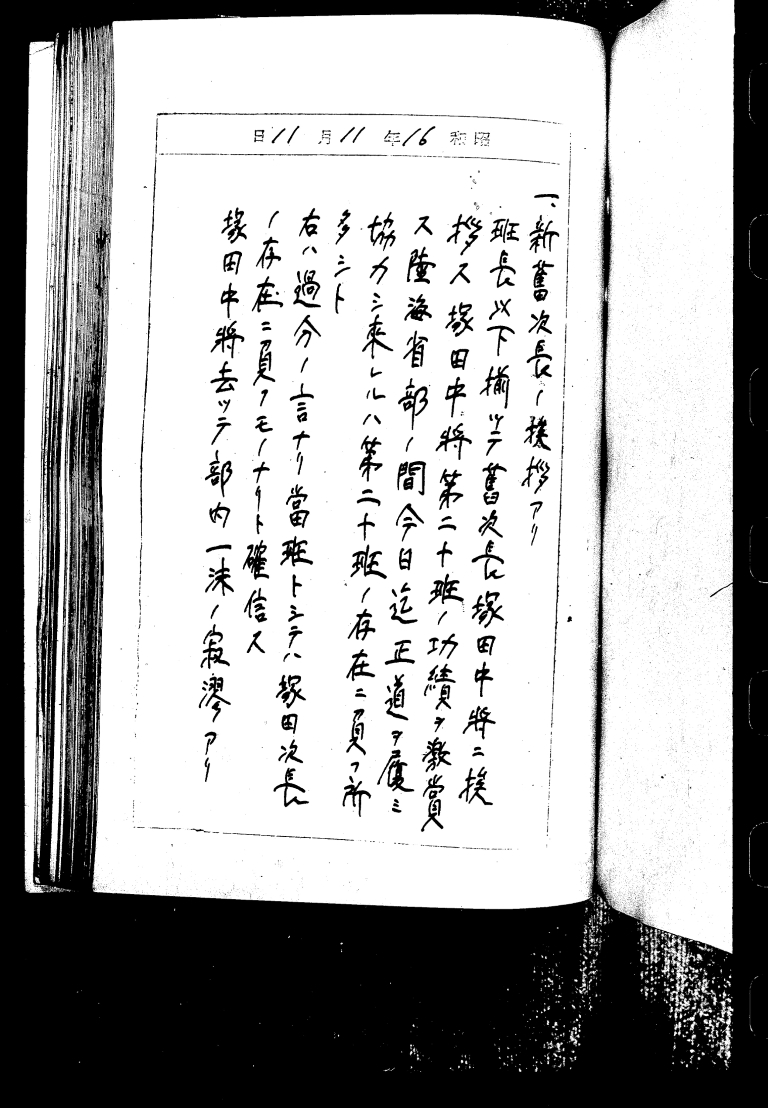 昭和16年11月11日
一、新舊次長ノ挨拶アリ
班長以下揃ツテ舊次長塚田中將ニ挨
拶ス塚田中將第二十班ノ功績ヲ激賞
ス陸海省部ノ間今日迄正道ヲ履ミ
協力シ來レルハ第二十班ノ存在ニ負フ所
多シト
右ハ過分ノ言ナリ當班トシテハ塚田次長
ノ存在ニ負フモノナリト確信ス
塚田中將去ツテ部内一沫ノ寂漻アリ